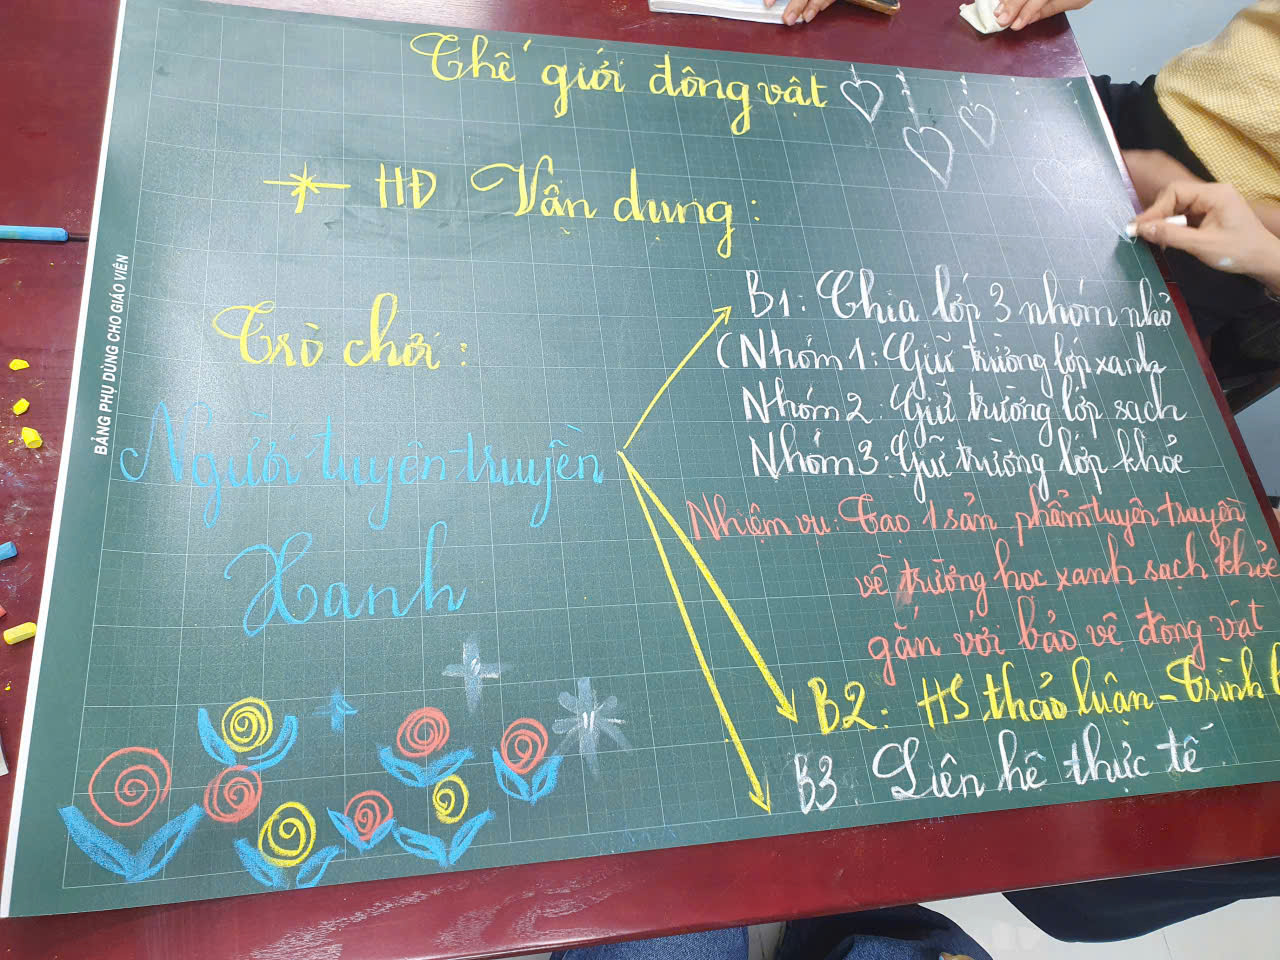 Thế giới động vật
HĐ Vận dụng:
Trò chơi:
Người tuyên truyền
Xanh
B1: Chia lớp 3 nhóm nhỏ
(Nhóm 1: Giữ trường lớp xanh
Nhóm 2: Giữ trường lớp sạch
Nhóm 3: Giữ trường lớp khỏe
Nhiệm vụ: Tạo 1 sản phẩm tuyên truyền
về trường học xanh sạch khỏe
gắn với bảo vệ động vật
B2: HS thảo luận - Trình
B3: Liên hệ thực tế.
BẢNG PHỤ DÙNG CHO GIÁO VIÊN